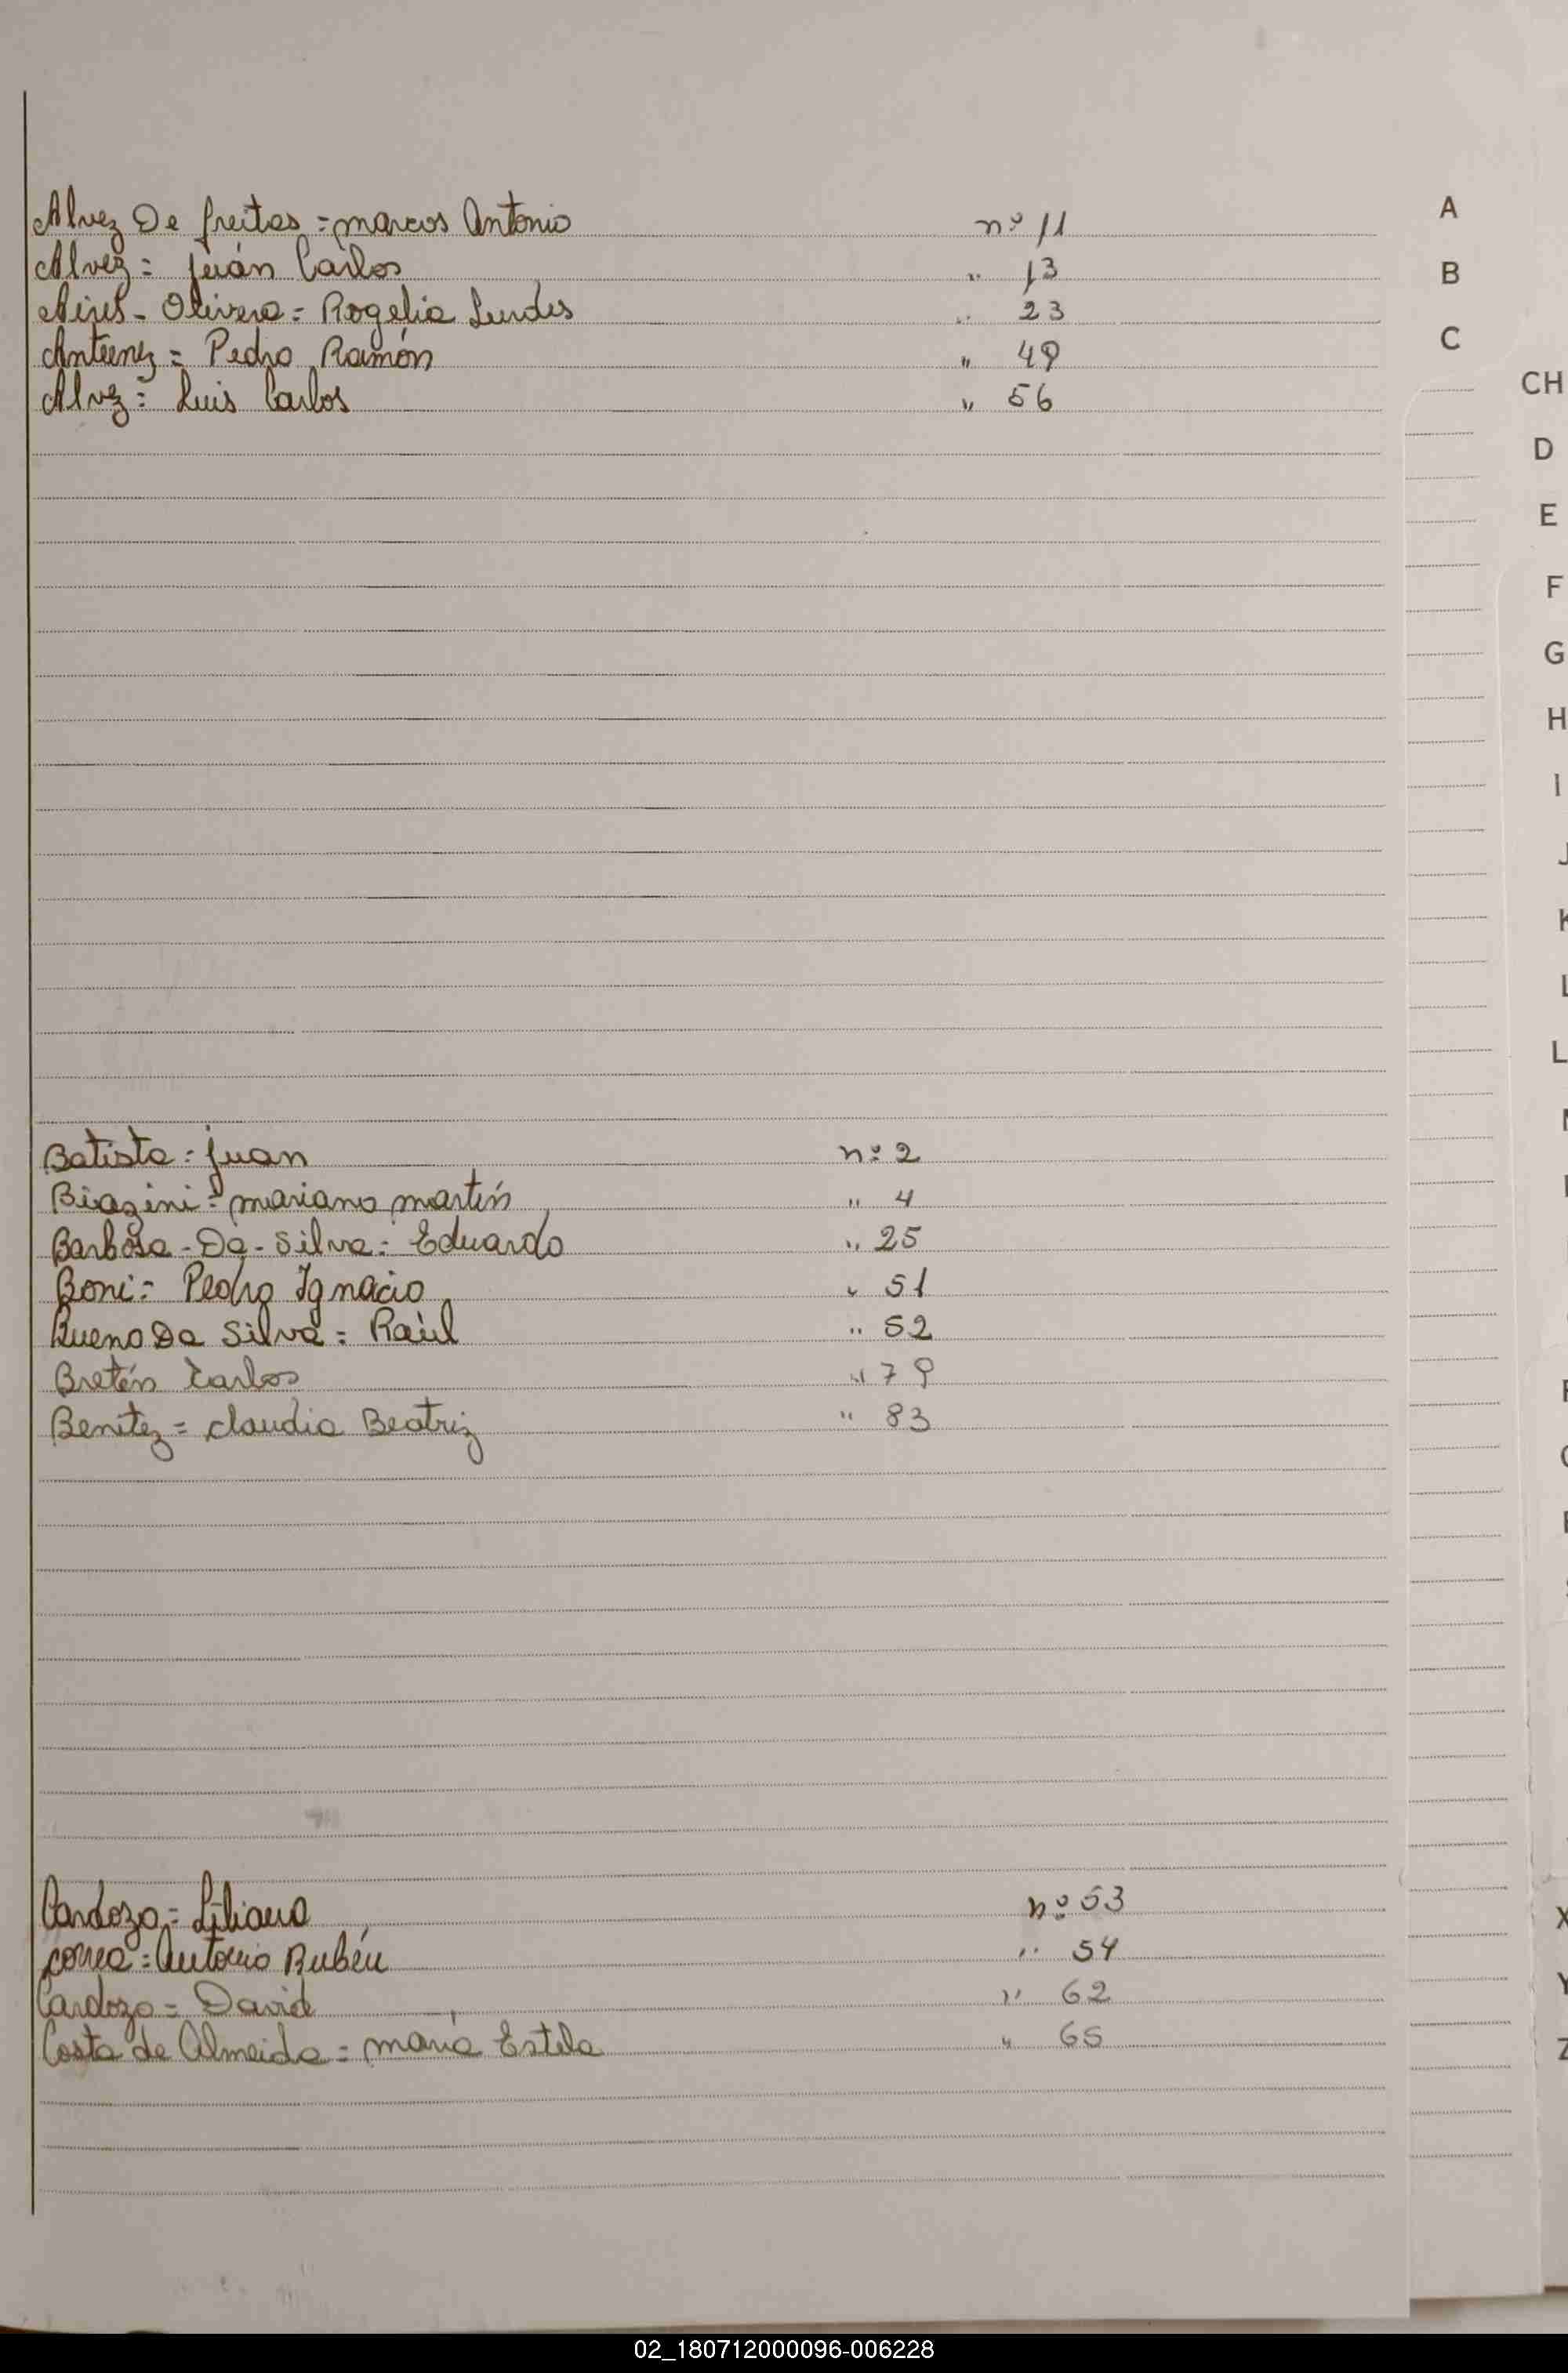 Alvez De freitas = marcos Antonio nº 11
Alvez = Juán Carlos " 13
Aires - Olivera = Rogelia Lurdes " 23
Antunez = Pedro Ramón " 49
Alvez = Luis Carlos " 56
Batista = Juan nº 2
Biagini = mariano martín " 4
Barbosa - Da - Silva = Eduardo " 25
Boni = Pedro Ignacio " 51
Bueno Da Silva = Raúl " 52
Bretón Carlos " 79
Benitez = Claudia Beatriz " 83
Cardozo = Liliana nº 53
Correa = Antonio Rubén " 54
Cardozo = David " 62
Costa de Almeida = maría Estela " 65
A
B
C
CH
D
E
F
G
H
I
J
K
L
X
Y
Z
02_180712000096-006228